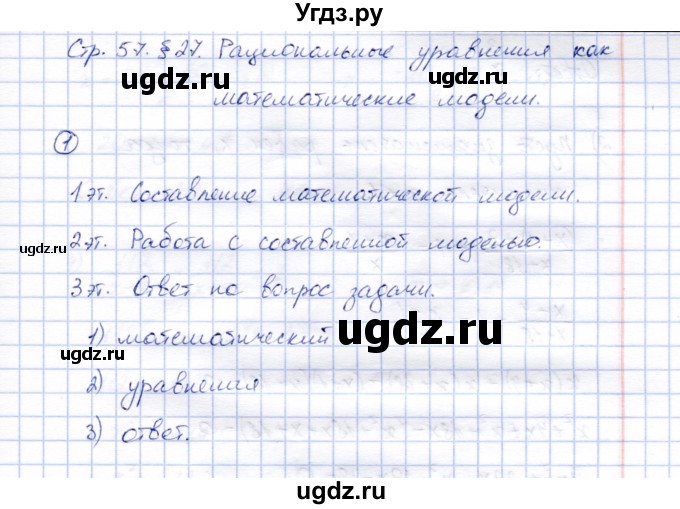 Угдз.ру
Стр. 57. § 27. Рациональные уравнения как
ugdz.ru ugdz.ru
математические модели.
1
1 эт. Составление математической модели.
ugdz.ru
2 эт. Работа с составленной моделью.
3 эт. Ответ на вопрос задачи.
1) математический
ugdz.ru
ugdz.ru
2) уравнения
3) ответ.
ugdz.ru